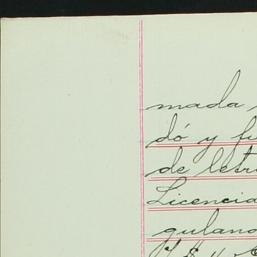 mada
dó y fi
de letr
Licencia
gulano